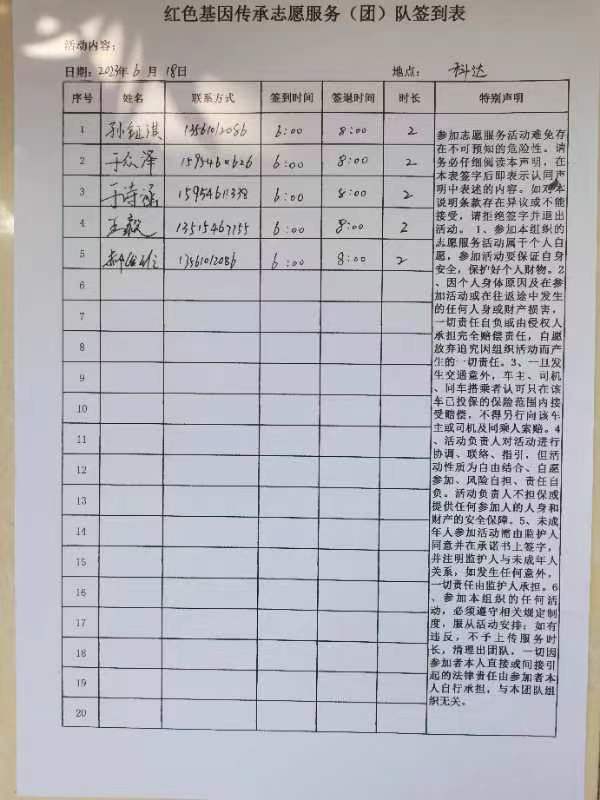 红色基因传承志愿服务（团）队签到表
活动内容：
日期：2023年6月18日 地点：科达
序号 姓名 联系方式 签到时间 签退时间 时长 特别声明
1 孙钰淇 13561012086 6:00 8:00 2
2 于众泽 15954600626 6:00 8:00 2
3 于诗涵 6:00 8:00 2
4 王毅 13515467155 6:00 8:00 2
5 13561012086 6:00 8:00 2
6
7
8
9
10
11
12
13
14
15
16
17
18
19
20
参加志愿服务活动难免存
在不可预知的危险性。请
务必仔细阅读本声明，在
本表签字后即表示认同声
明中表述的内容。如对本
说明条款存在异议或不能
接受，请拒绝签字并退出
活动。1、参加本组织的
志愿服务活动属于个人自
愿，参加活动要保证自身
安全，保护好个人财物。2
、因个人身体原因及在参
加活动或在往返途中发生
的任何人身或财产损害，
一切责任自负或由侵权人
承担完全赔偿责任，自愿
放弃追究因组织活动而产
生的一切责任。3、一旦发
生交通意外，车主、司机
、同车搭乘者认可只在该
车已投保的保险范围内接
受赔偿，不得另行向该车
主或司机及同乘人索赔。4
、活动负责人对活动进行
协调、联络、指引，但活
动性质为自由结合、自愿
参加、风险自担、责任自
负。活动负责人不担保或
提供任何参加人的人身和
财产的安全保障。5、未成
年人参加活动需由监护人
同意并在承诺书上签字，
并注明监护人与未成年人
关系，如发生任何意外，
一切责任由监护人承担。6
、参加本组织的任何活
动，必须遵守相关规定制
度，服从活动安排；如有
违反，不予上传服务时
长，清理出团队，一切因
参加者本人直接或间接引
起的法律责任由参加者本
人自行承担，与本团队组
织无关。